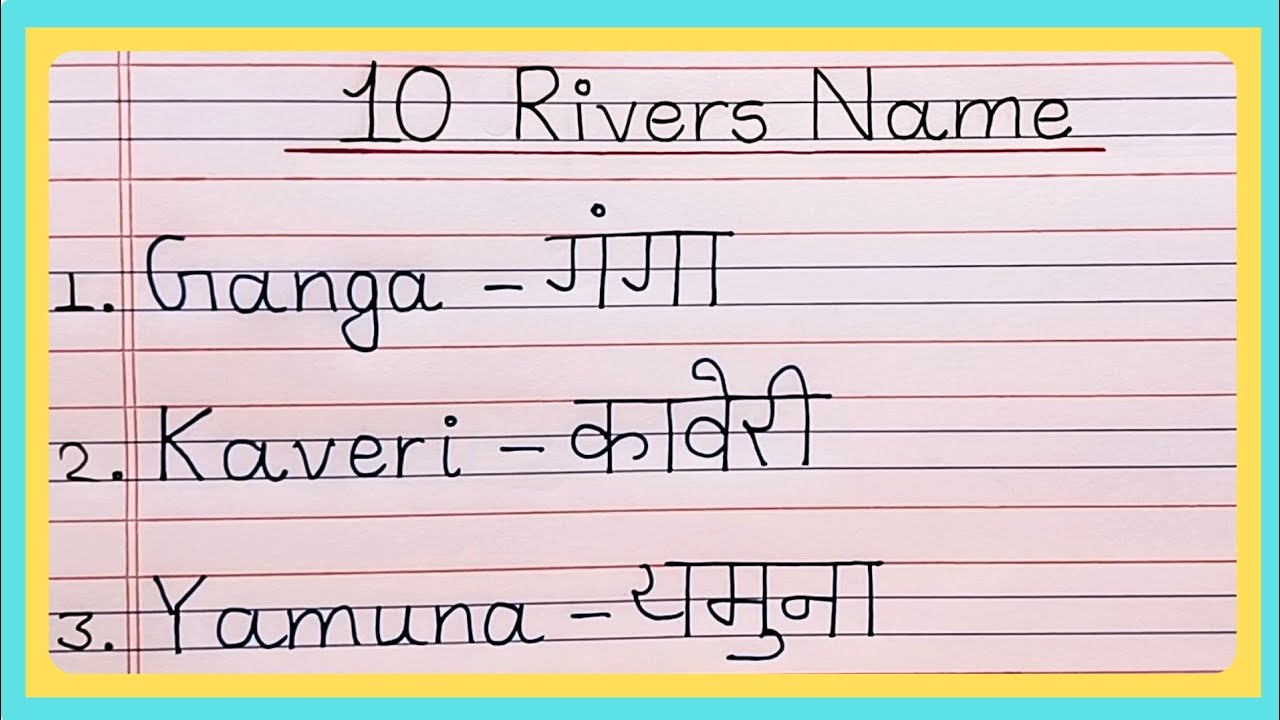 10 Rivers Name
1. Ganga - गंगा
2. Kaveri - कावेरी
3. Yamuna - यमुना